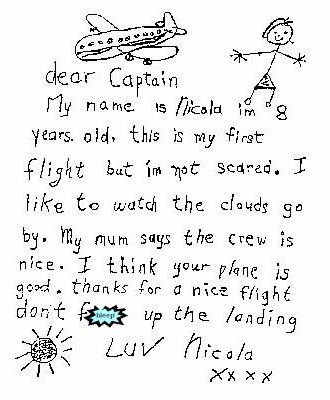 dear Captain
My name is Nicola im 8
years old, this is my first
flight but im not scared. I
like to watch the clouds go
by. My mum says the crew is
nice. I think your plane is
good. thanks for a nice flight
don't f bleep up the landing
LUV Nicola
xxxx